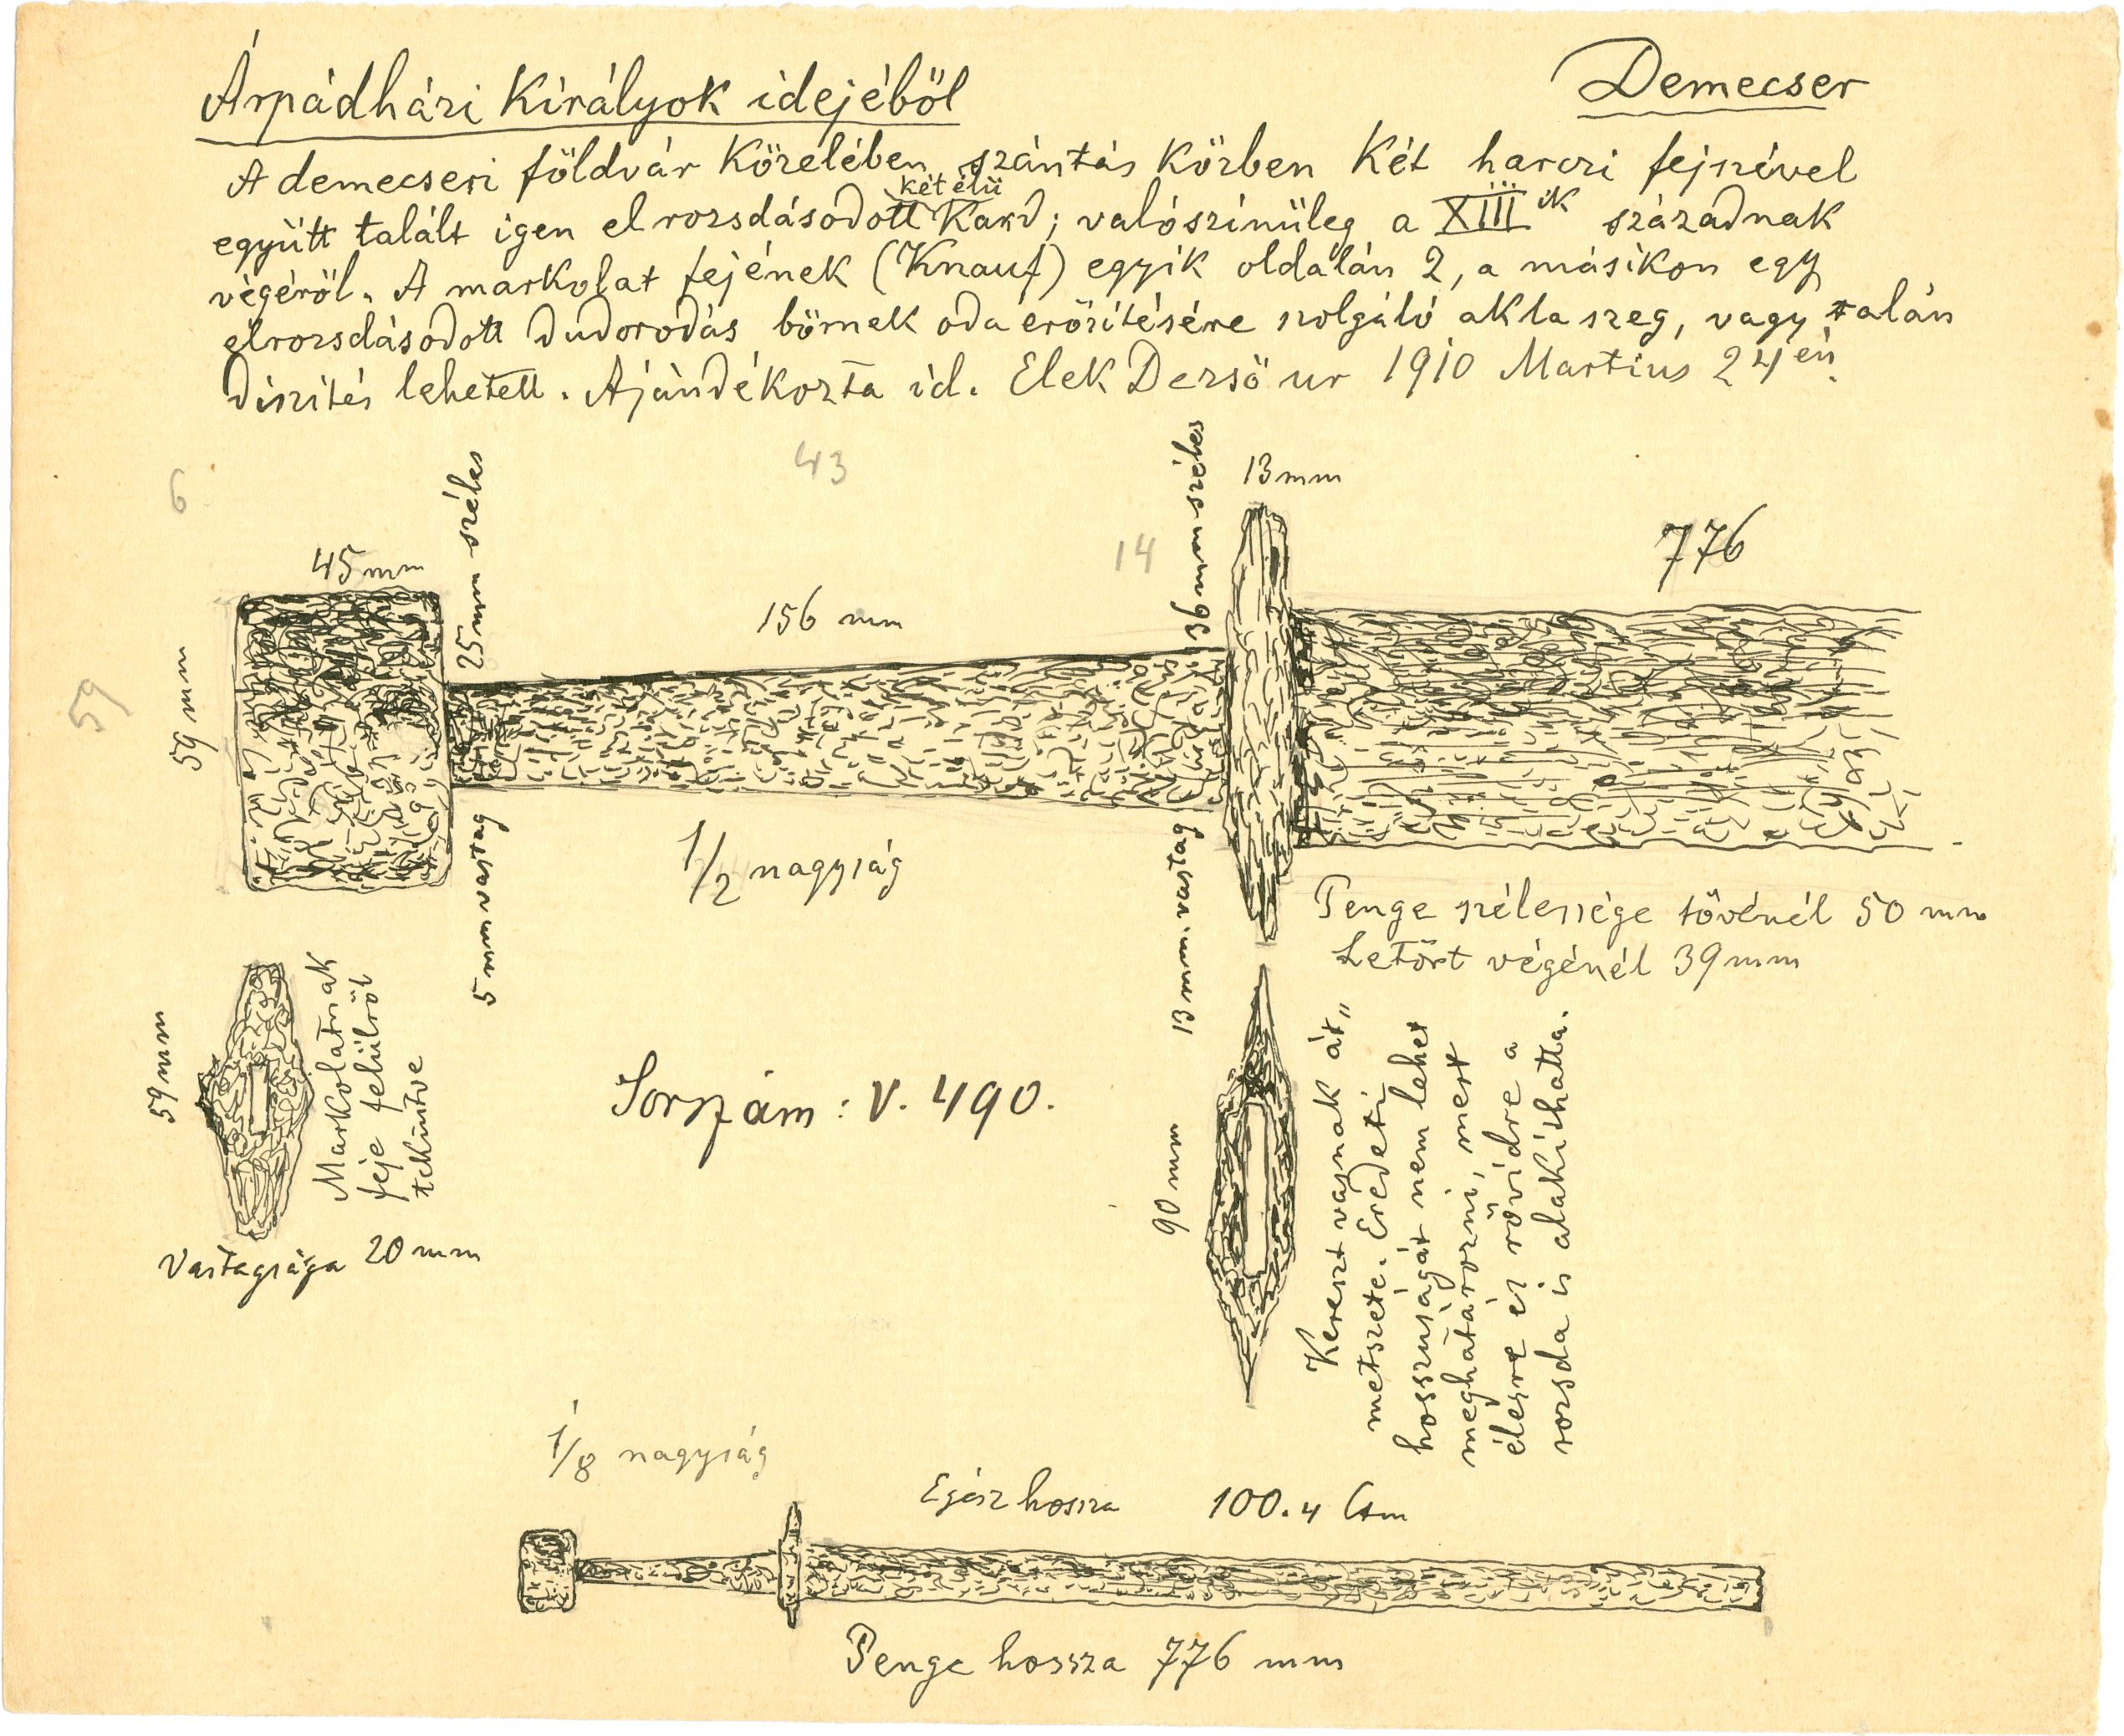 Árpádházi Királyok idejéből
Demecser
A demecseri földvár közelében, szántás közben két harczi fejszével
együtt talált igen elrozsdásodott kétélü Kard; valószinüleg a XIII ik századnak
végéről. A markolat fejének (Knauf) egyik oldalán 2, a másikon egy
elrozsdásodott dudorodás bőrnek oda erősitésére szolgáló akla szeg, vagy talán
diszités lehetett. Ajándékozta id. Elek Dezső ur 1910 Martius 24 én.
43
6
13 mm
776
45 mm
25 mm széles
36 mm széles
14
156 mm
59
59 mm
5 mm vastag
1/2 nagyság
13 mm. vastag
Penge szélessége tövénél 50 mm
Letört végénél 39 mm
59 mm
Markolatnak
feje felülről
tekintve
Vastagsága 20 mm
Sorszám: V. 490.
90 mm
Kereszt vasnak át„
metszete. Eredeti
hosszuságát nem lehet
meghatározni, mert
élesre és rövidre a
rozsda is alakithatta.
1/8 nagyság
Egész hossza 100.4 Ctm
Penge hossza 776 mm